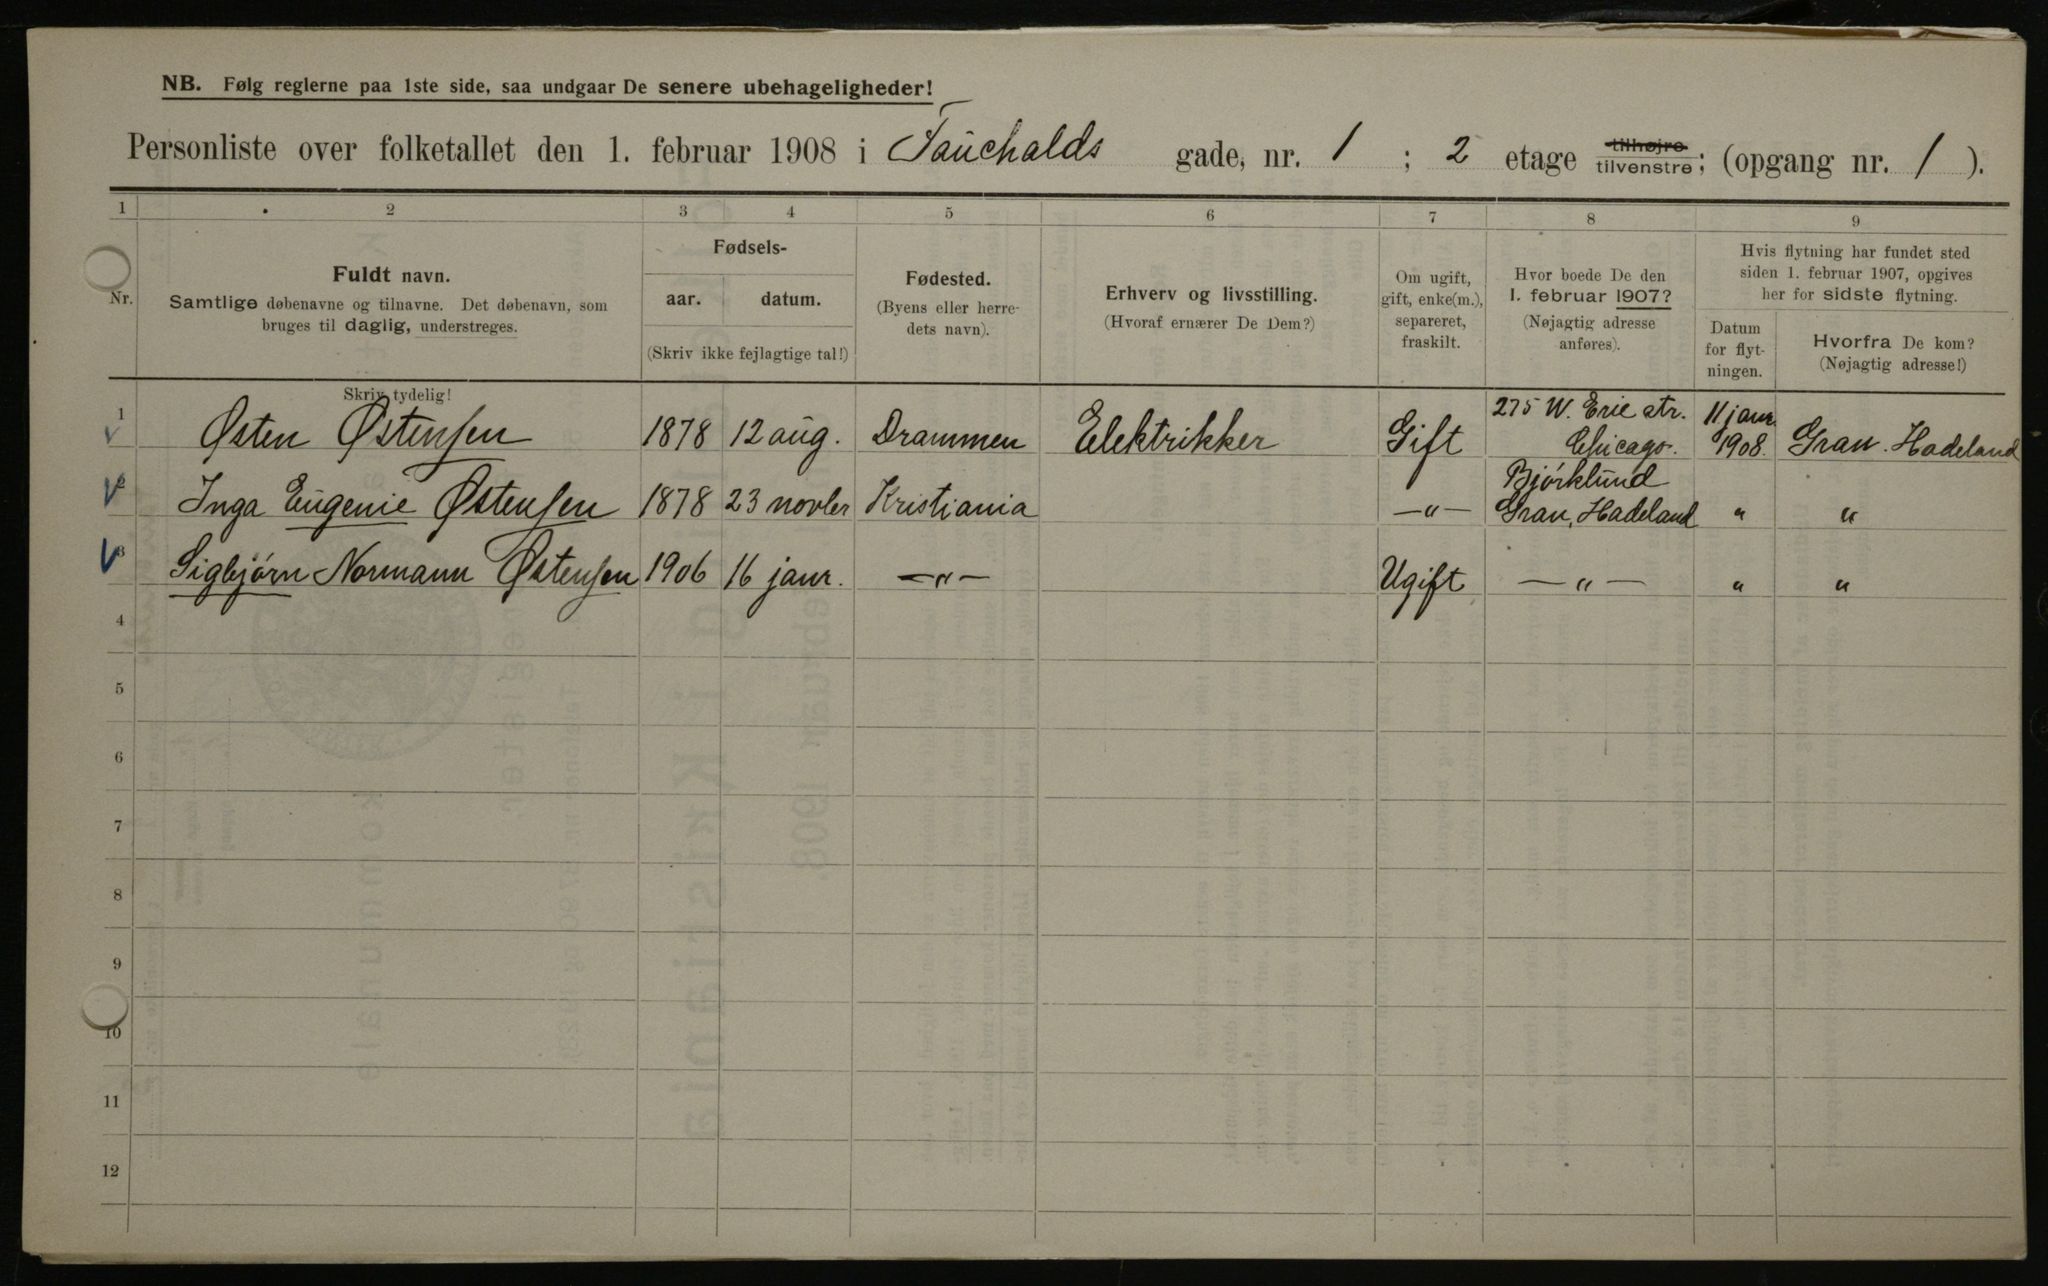 NB. Følg reglerne paa 1ste side, saa undgaar De senere ubehageligheder!
Personliste over folketallet den 1. februar 1908 i Fauchalds gade, nr. 1 ; 2 etage tilhøjre tilvenstre; (opgang nr. 1 ).
1 2 3 4 5 6 7 8 9
Nr.
Fuldt navn.
Samtlige døbenavne og tilnavne. Det døbenavn, som
bruges til daglig, understreges.
Skriv tydelig!
Fødsels-
aar. datum.
(Skriv ikke fejlagtige tal!)
Fødested.
(Byens eller herre-
dets navn).
Erhverv og livsstilling.
(Hvoraf ernærer De Dem?)
Om ugift,
gift, enke(m.),
separeret,
fraskilt.
Hvor boede De den
1. februar 1907?
(Nøjagtig adresse
anføres).
Hvis flytning har fundet sted
siden 1. februar 1907, opgives
her for sidste flytning.
Datum
for flyt-
ningen.
Hvorfra De kom?
(Nøjagtig adresse!)
1 Østen Østensen 1878 12 aug. Drammen Elektrikker Gift 275 W. Erie str. Chicago. 11 janr. 1908. Gran. Hadeland
2 Inga Eugenie Østensen 1878 23 novbr Kristiania —"— Bjørklund Gran, Hadeland " "
3 Sigbjørn Normann Østensen 1906 16 janr. —"— Ugift —"— " "
4
5
6
7
8
9
10
11
12